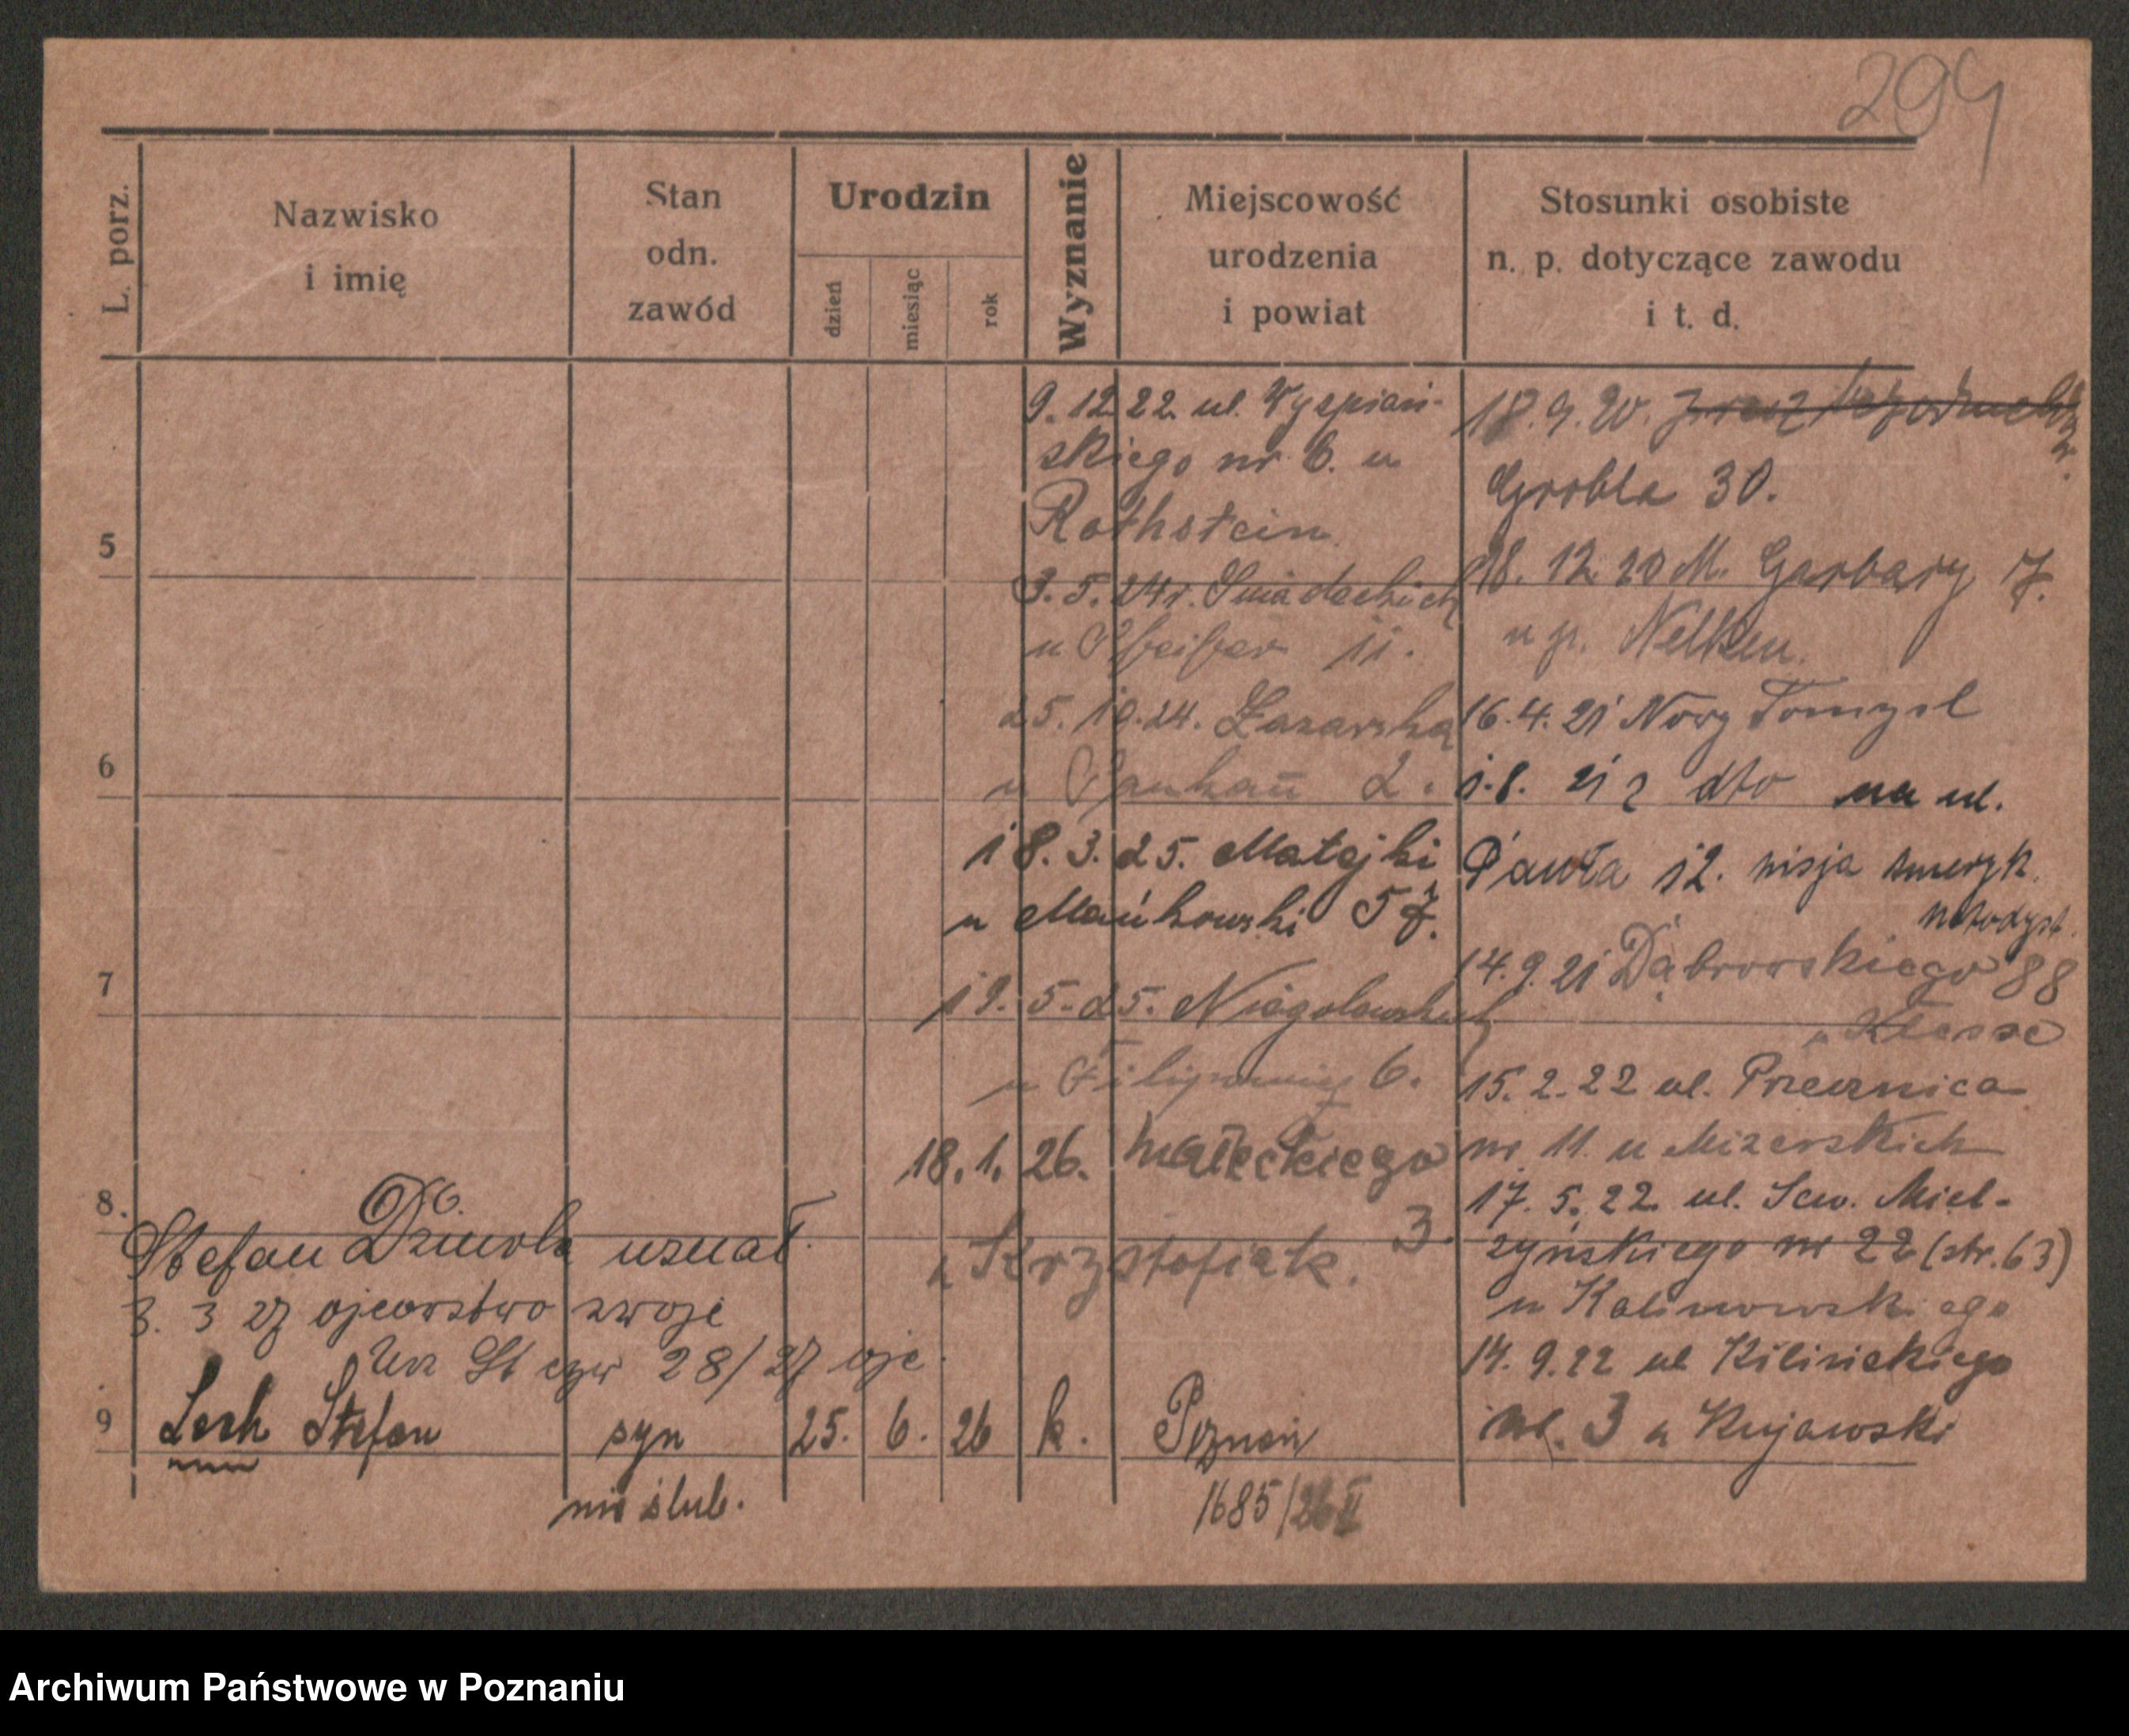 294
L. porz.
Nazwisko
i imię
Stan
odn.
zawód
Urodzin
dzień
miesiąc
rok
Wyznanie
Miejscowość
urodzenia
i powiat
Stosunki osobiste
n. p. dotyczące zawodu
i t. d.
9. 12 22. ul. Wyspiań-
skiego nr 6. u
Rothstein
3. 5. 24 r. Śniadeckich
u Pfeifer 11.
25. 10. 24. Łazarska
u 2.
18. 3. 25. Matejki
u Mańkowski 57.
19. 5. 25. Niegolewskich
u 6.
18. 1. 26. Małeckiego
u Krzysztofiak. 3.
18. 9. 20.
Grobla 30.
18. 12 20 M. Garbary 7.
u p. Nelken.
16. 4. 21 Nowy Tomysl
1. 8. 21 z dto na ul.
Pawła 12. misja ameryk.
metodyst.
14. 9. 21 Dąbrowskiego 88
u Klesse
15. 2. 22 ul. Przecznica
nr 11. u Mizerskich
17. 5. 22 ul. Sew. Miel-
żyńskiego nr 22 (str. 63)
u Kalinowskiego
14. 9. 22 ul Kilińskiego
3 u Kujawski
5
6
7
8.
Stefan uznał
3. 3 27 ojcowstwo swoje
28/27
9 Lech Stefan syn 25. 6. 26 k. Poznań
nieślub. 1685/26 II
Archiwum Państwowe w Poznaniu